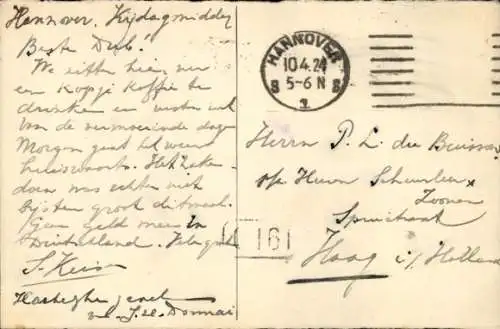 Hannover. Vrijdagmiddag
Beste Dub.
We zitten hier nu
een kopje koffie te
drinken en rusten uit
van de vermoeiende dagen
Morgen gaat het weer
huiswaarts. Het zaken
doen was echter niet
bijster groot ditmaal.
Geen geld meer in
Duitschland.
Hartelijke groet
HANNOVER
10.4.24
5-6 N
8 8
1
Herrn P. L. du Buisson
p/a Heeren Scheurleer &
Zoonen
Spuistraat
161
Haag i/ Holland